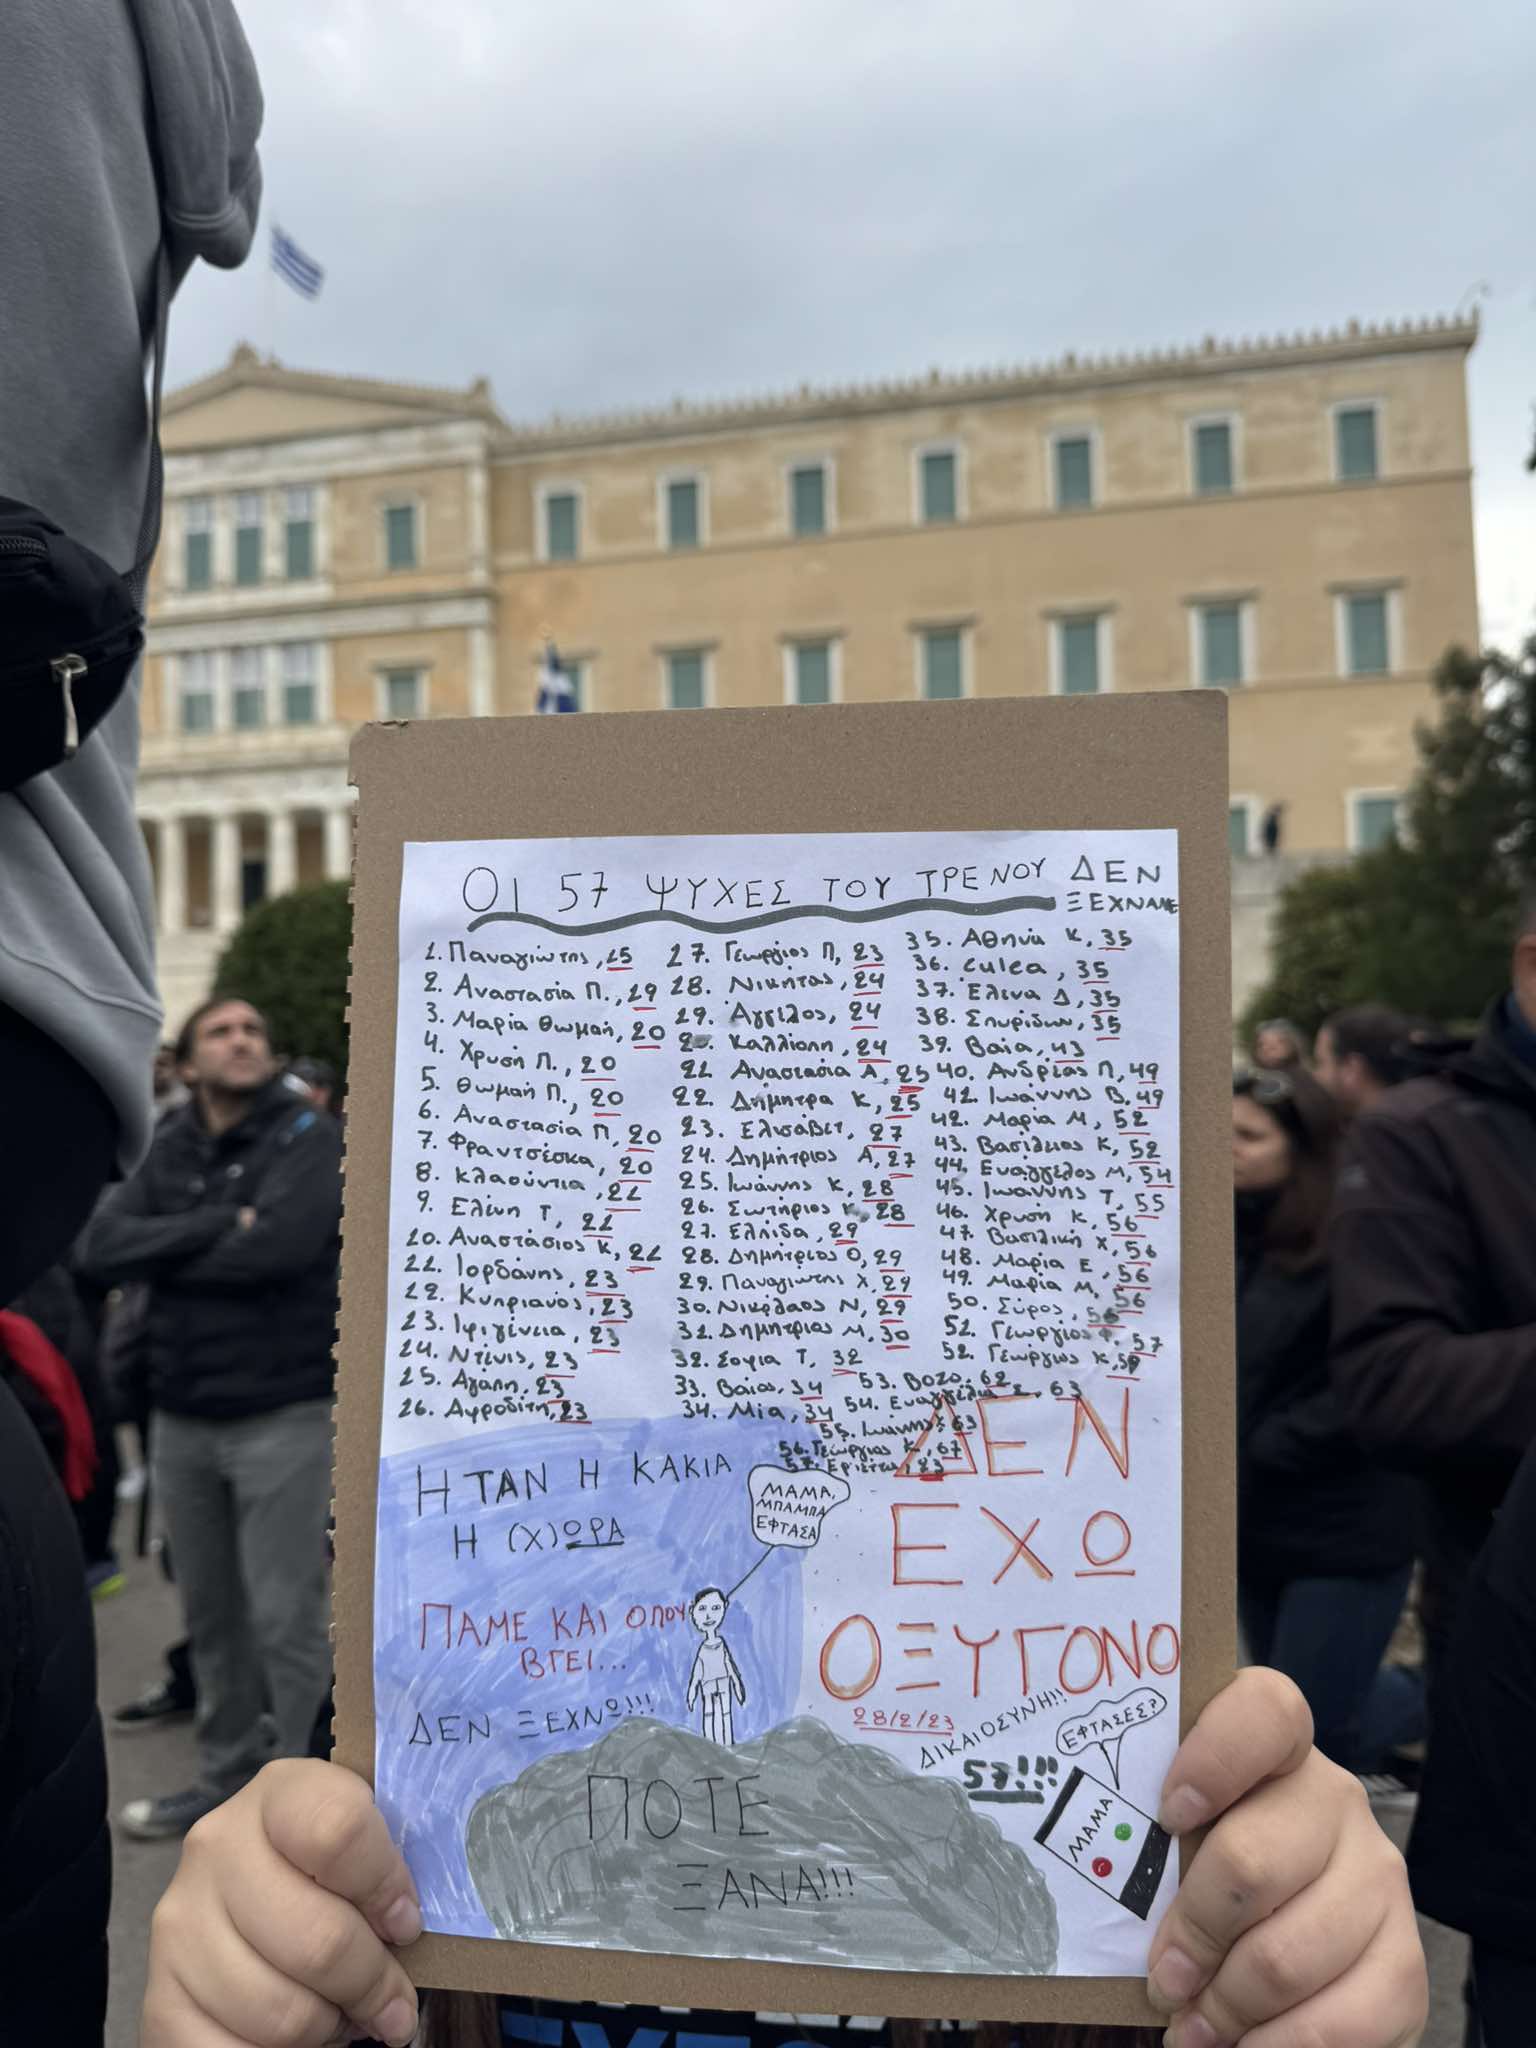 ΟΙ 57 ΨΥΧΕΣ ΤΟΥ ΤΡΕΝΟΥ ΔΕΝ
ΞΕΧΝΑΜΕ
1. Παναγιώτης, 15
2. Αναστασία Π., 19
3. Μαρία Θωμαή, 20
4. Χρυσή Π., 20
5. Θωμαή Π., 20
6. Αναστασία Π, 20
7. Φραντσέσκα, 20
8. Κλαούντια, 21
9. Ελένη Τ, 21
10. Αναστάσιος Κ, 21
11. Ιορδάνης, 23
12. Κυπριανός, 23
13. Ιφιγένεια, 23
14. Ντένις, 23
15. Αγάπη, 23
16. Αφροδίτη, 23
17. Γεώργιος Π, 23
18. Νικήτας, 24
19. Άγγελος, 24
Καλλιόπη, 24
21. Αναστασία Α, 25
22. Δήμητρα Κ, 25
23. Ελισάβετ, 27
24. Δημήτριος Α, 27
25. Ιωάννης Κ, 28
26. Σωτήριος Κ, 28
27. Ελπίδα, 29
28. Δημήτριος Ο, 29
29. Παναγιώτης Χ, 29
30. Νικόλαος Ν, 29
31. Δημήτριος Μ, 30
32. Σοφία Τ, 32
33. Βάιος, 34
34. Μία, 34
35. Αθηνά Κ, 35
36. 35
37. Έλενα Δ, 35
38. Σπυρίδων, 35
39. Βάια, 43
40. Ανδρέας Π, 49
41. Ιωάννης Β, 49
42. Μαρία Μ, 52
43. Βασίλειος Κ, 52
44. Ευάγγελος Μ, 54
45. Ιωάννης Τ, 55
46. Χρυσή Κ, 56
47. Βασιλική Χ, 56
48. Μαρία Ε, 56
49. Μαρία Μ, 56
50. Σύρος, 56
51. Γεώργιος Φ, 57
52. Γεώργιος Κ,
53. Βοζο, 62
54. Ευαγγελία Σ, 63
55. Ιωάννης 63
56. Γεώργιος Κ, 67
57. Εριέττα, 83
ΗΤΑΝ Η ΚΑΚΙΑ
Η (Χ)ΩΡΑ
ΜΑΜΑ,
ΜΠΑΜΠΑ
ΕΦΤΑΣΑ
ΔΕΝ
ΕΧΩ
ΟΞΥΓΟΝΟ
ΠΑΜΕ ΚΑΙ ΟΠΟΥ
ΒΓΕΙ...
ΔΕΝ ΞΕΧΝΩ!!!
28/2/23
ΔΙΚΑΙΟΣΥΝΗ!!
57!!!
ΕΦΤΑΣΕΣ?
ΜΑΜΑ
ΠΟΤΕ
ΞΑΝΑ!!!